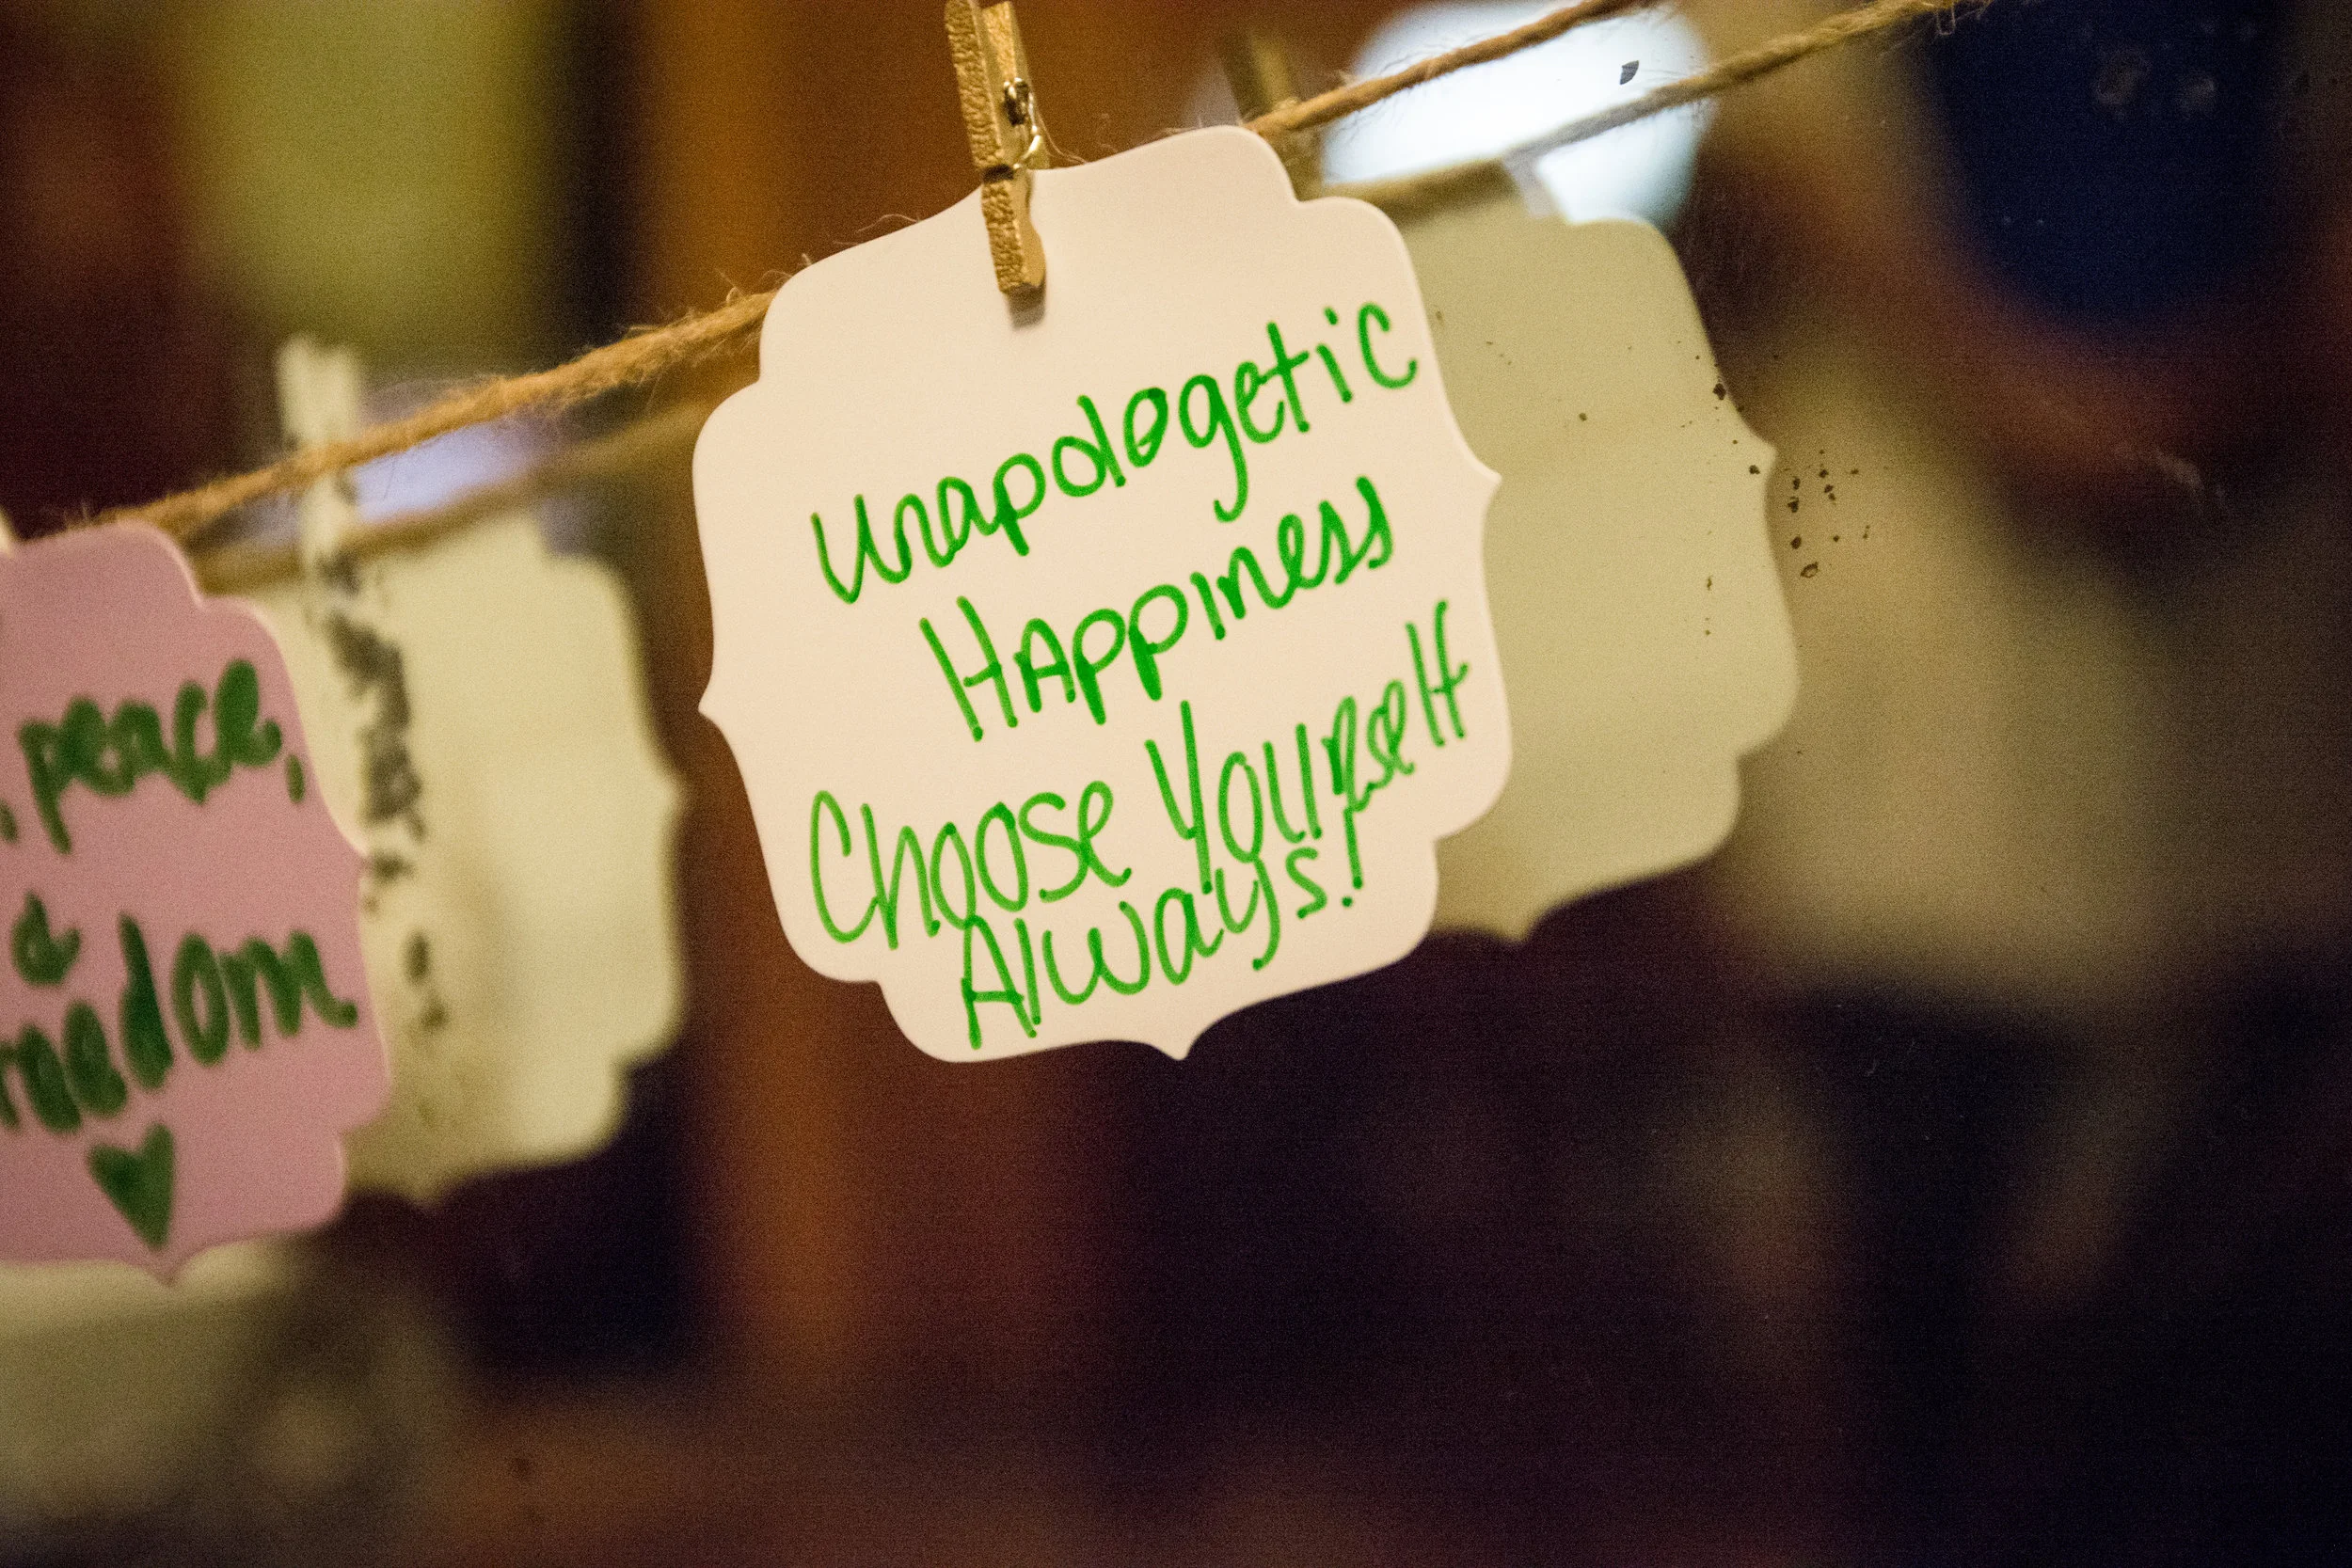 peace,
&
freedom
Unapologetic
Happiness
Choose Yourself
Always!